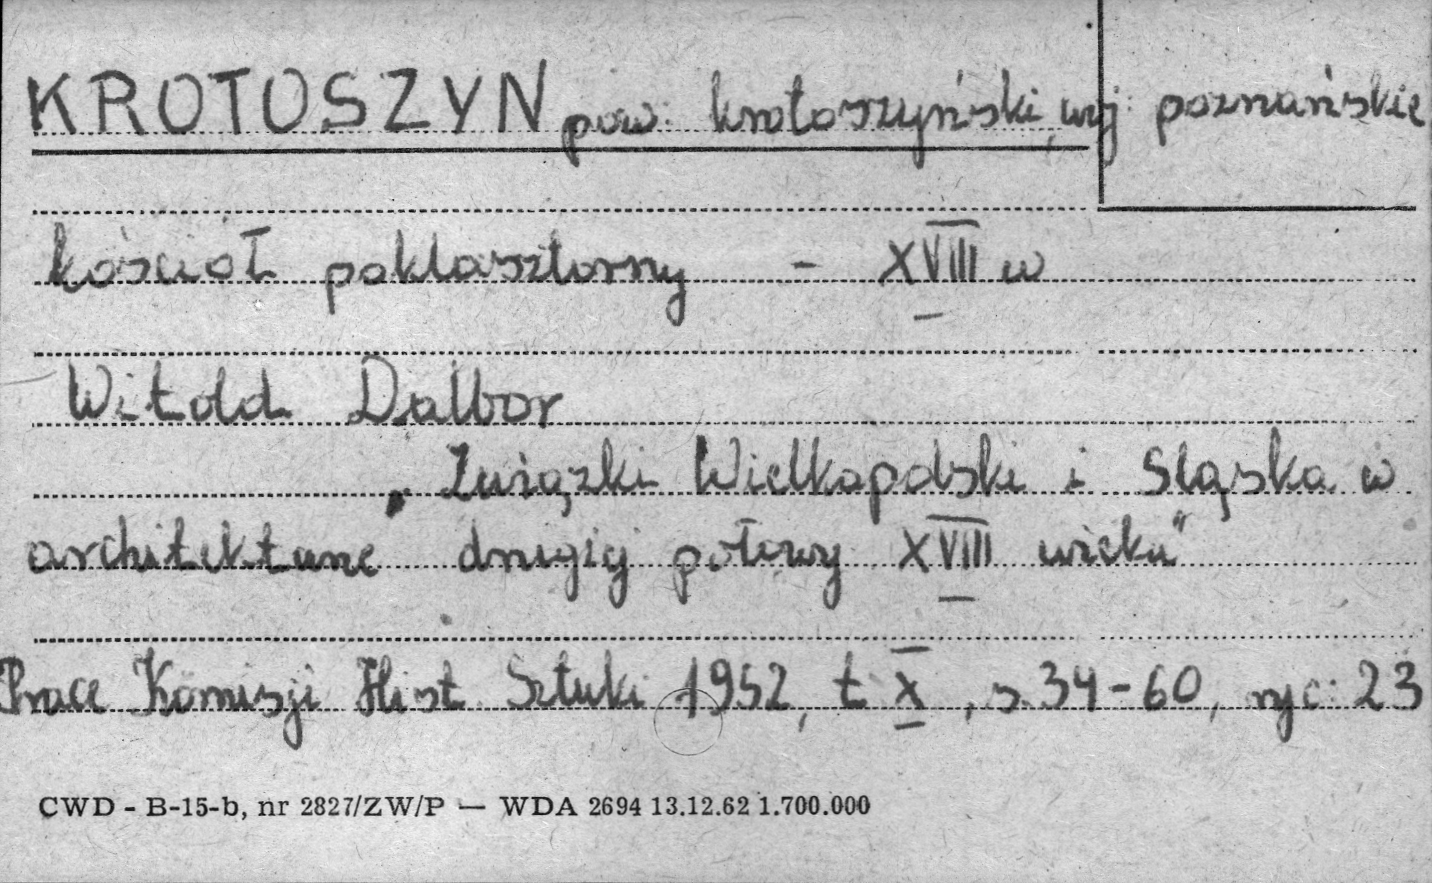 KROTOSZYN pow. krotoszyński, woj. poznańskie
kościół poklasztorny - XVIII w
Witold Dalbor
„Związki Wielkopolski i Śląska w
architekturze drugiej połowy XVIII wieku"
Prace Komisji Hist. Sztuki 1952, t X, s. 34-60, ryc: 23
CWD - B-15-b, nr 2827/ZW/P — WDA 2694 13.12.62 1.700.000